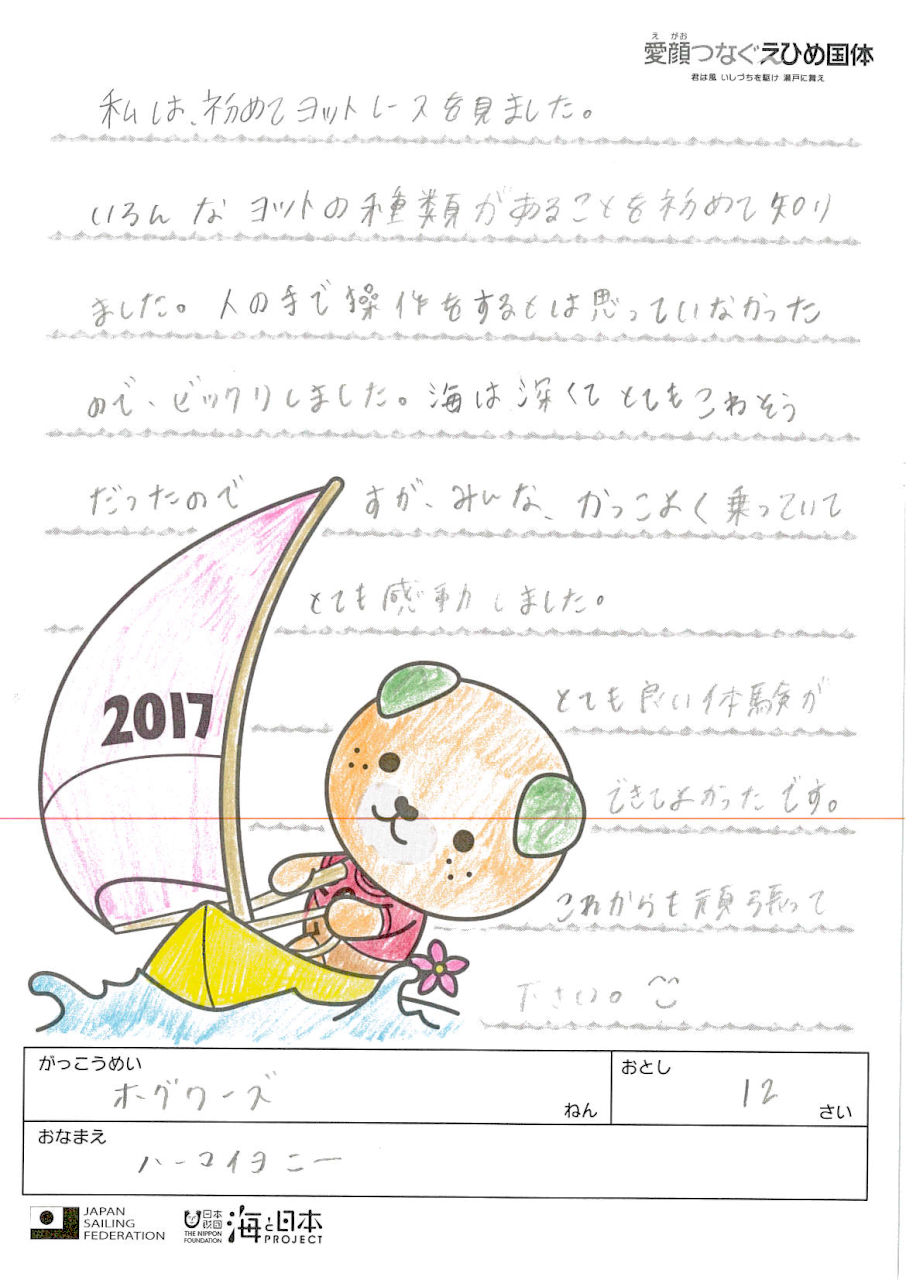 え がお
愛顔つなぐえひめ国体
君は風 いしづちを駆け 瀬戸に舞え
私は、初めてヨットレースを見ました。
いろんなヨットの種類があることを初めて知り
ました。人の手で操作をするとは思っていなかった
ので、ビックリしました。海は深くてとてもこわそう
だったのですが、みんな、かっこよく乗っていて
とても感動しました。
とても良い体験が
できてよかったです。
これからも頑張って
下さい。
2017
がっこうめい
ホグワーズ
ねん
おとし
12
さい
おなまえ
ハーマイヨニー
JAPAN
SAILING
FEDERATION
日本
財団
THE NIPPON
FOUNDATION
海と日本
PROJECT